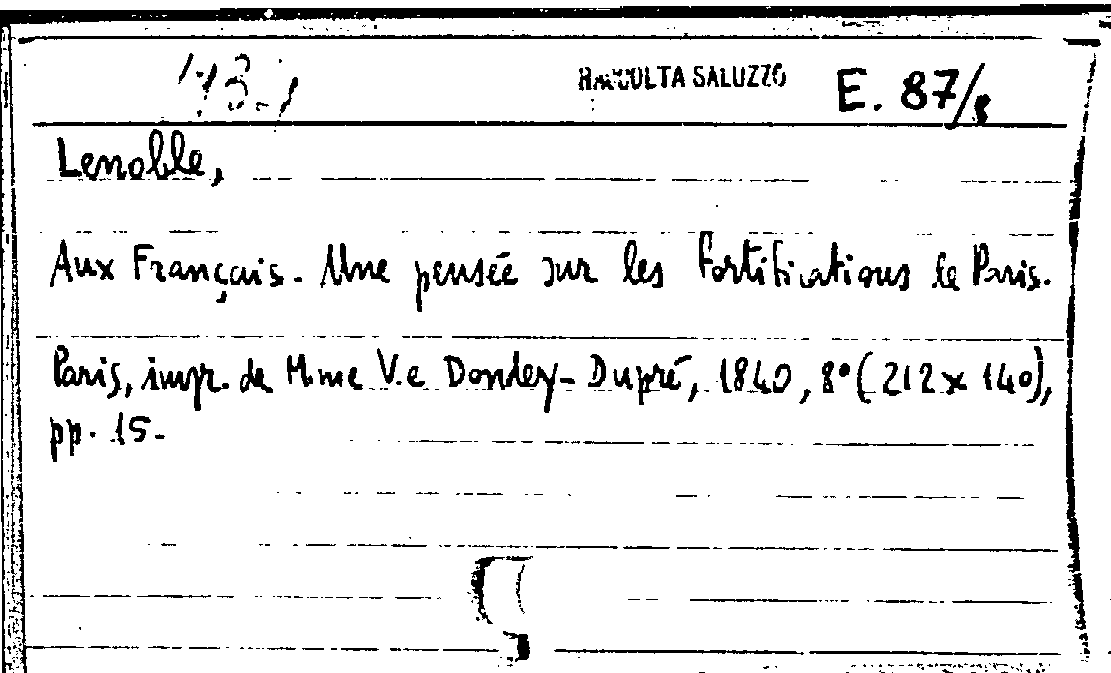 RACCOLTA SALUZZO E. 87/8
Lenoble,
Aux Français. Une pensée sur les fortifications de Paris.
Paris, impr. de Mme V.e Dondey-Dupré, 1840, 8° (212 x 140),
pp. 15.